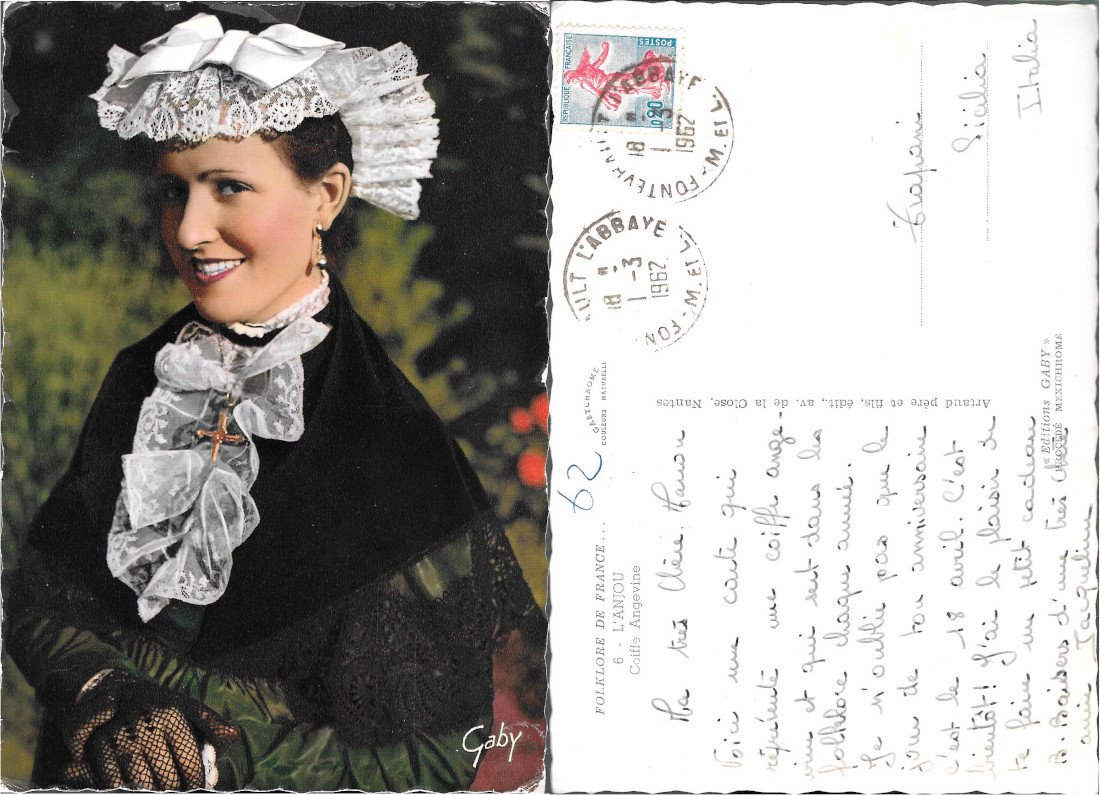 Gaby
FOLKLORE DE FRANCE...
6 - L'ANJOU
Coiffe Angevine
62
GABYCHROME
COULEURS NATURELLES
Artaud père et fils, édit., av. de la Close, Nantes
« Editions GABY »
PROCÉDÉ MEXICHROME
REPUBLIQUE FRANÇAISE
POSTES
0,20
L'ABBAYE
18 H
1 -3
1962
FONTEVRAULT
M. ET L.
AULT L'ABBAYE
18 H
1 -3
1962
FON
M. ET L.
Ma très chère
Voici une carte qui
représente une coiffe ange-
vine et qui sent dans les
folklore chaque année.
Je n'oublie pas que le
jour de ton anniversaire
c'est le 18 avril. C'est
bientôt! J'ai le plaisir de
te faire un petit cadeau
B. Baisers d'une très chère
amie Jacqueline
Trapani
Sicilia
Italia